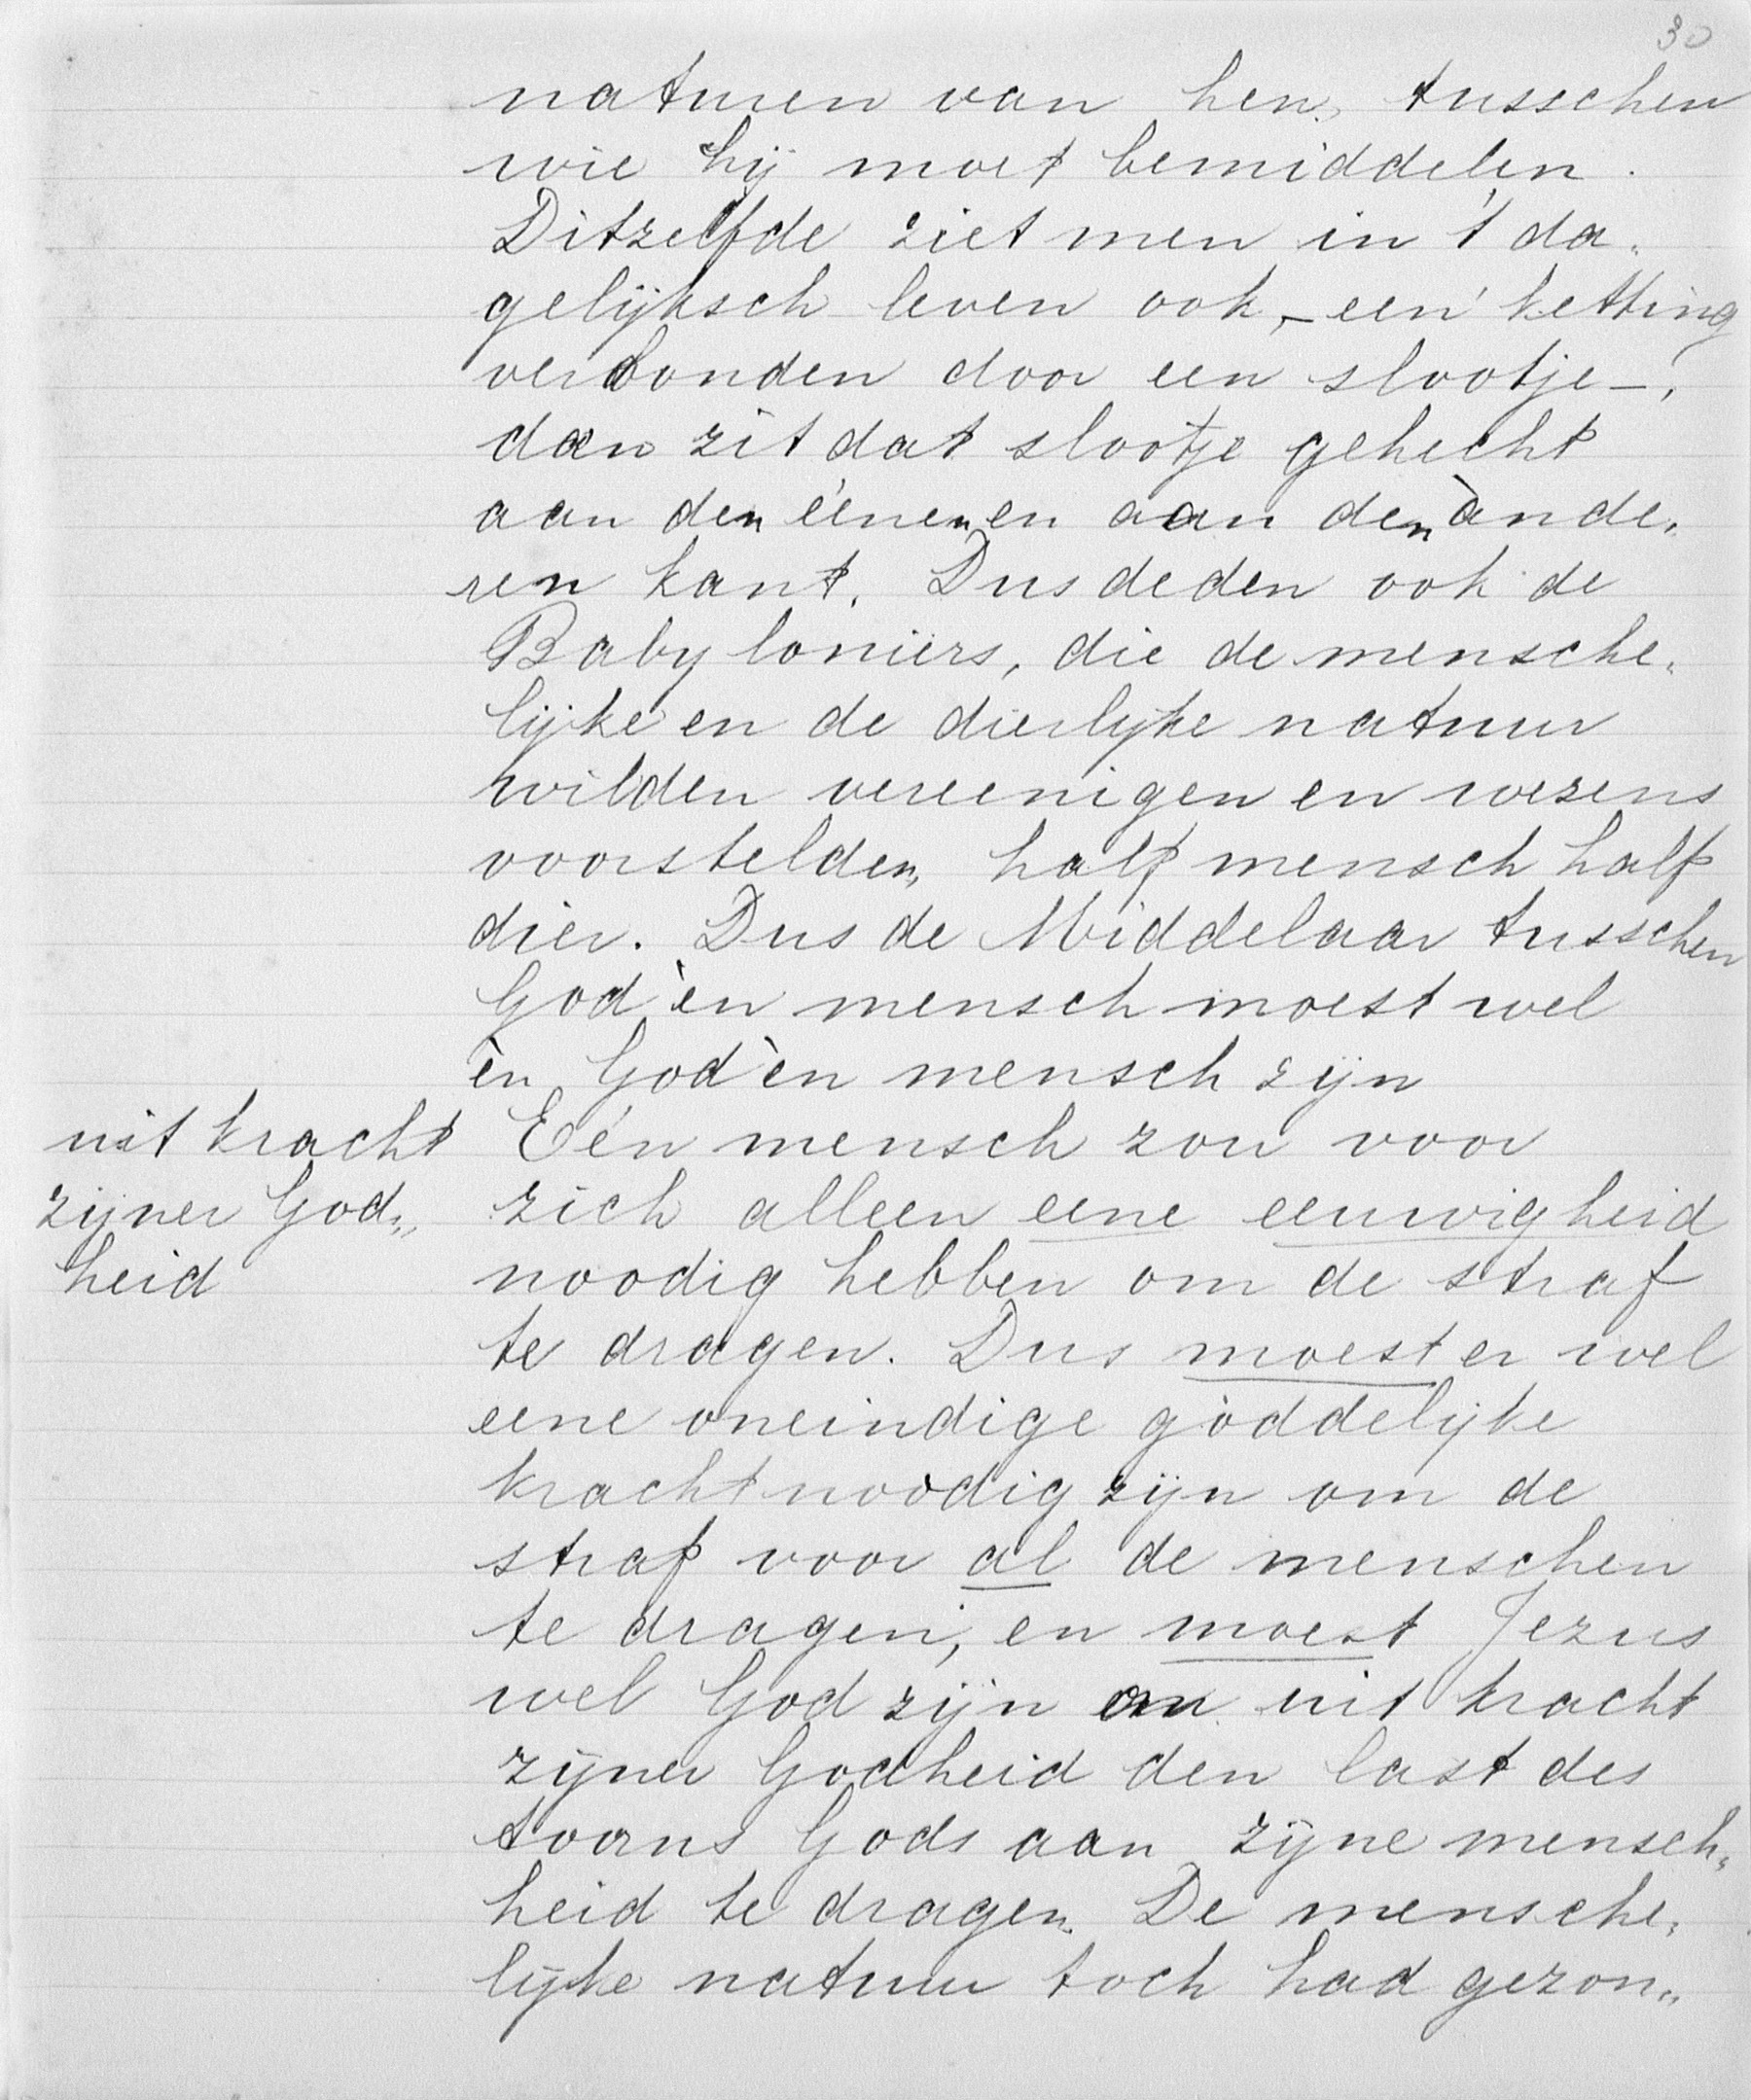 30
naturen van hen, tusschen
wie hij moet bemiddelen.
Ditzelfde ziet men in 't da„
gelijksch leven ook, – een ketting
verbonden door een slootje –,
dan zit dat slootje gehecht
aan den éénen en aan den ànde„
ren kant. Dus deden ook de
Babyloniërs, die de mensche„
lijke en de dierlijke natuur
wilden vereenigen en wezens
voorstelden, half mensch half
dier. Dus de Middelaar tusschen
God èn mensch moest wel
èn God èn mensch zijn
uit kracht
zijner God„
heid
Eén mensch zou voor
zich alleen eene eeuwigheid
noodig hebben om de straf
te dragen. Dus moest er wel
eene oneindige goddelijke
kracht noodig zijn om de
straf voor al de menschen
te dragen; en moest Jezus
wel God zijn om uit kracht
zijner Godheid den last des
toorns Gods aan zijne mensch„
heid te dragen. De mensche„
lijke natuur toch had gezon„